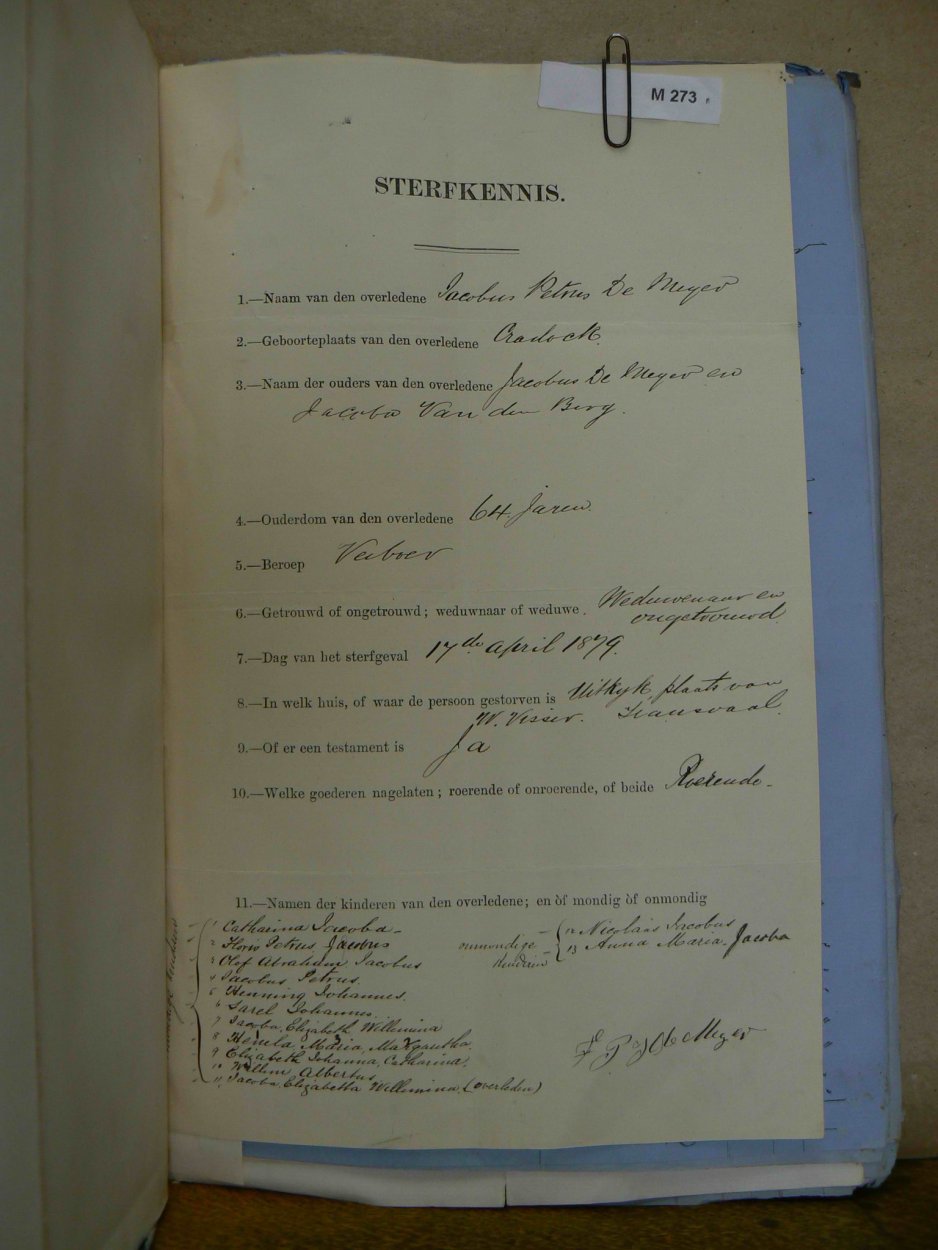 M 273
STERFKENNIS.
1.—Naam van den overledene Jacobus Petrus De Meyer
2.—Geboorteplaats van den overledene Cradock.
3.—Naam der ouders van den overledene Jacobus De Meyer en
Jacoba Van den Berg.
4.—Ouderdom van den overledene 64 Jaren.
5.—Beroep Veeboer
6.—Getrouwd of ongetrouwd; weduwnaar of weduwe. Weduwenaar en
ongetrouwd
7.—Dag van het sterfgeval 17de April 1879.
8.—In welk huis, of waar de persoon gestorven is Uitkyk, plaats van
W. Visser. Transvaal.
9.—Of er een testament is Ja
10.—Welke goederen nagelaten; roerende of onroerende, of beide Roerende-
11.—Namen der kinderen van den overledene; en òf mondig òf onmondig
1 Catharina Jacoba-
2 Floris Petrus Jacobus
3 Olof Abraham Jacobus
4 Jacobus Petrus.
5 Henning Johannes.
6 Sarel Johannes.
7 Jacoba, Elizabeth, Willemina
8 Helela, Maria, Margaretha
9 Elizabeth Johanna, Catharina,
10 Willem Albertus
11 Jacoba Elizabetha Willemina, (overleden)
onmondige kinderen
12 Nicolaas Jacobus
13 Anna Maria Jacoba
De Meyer